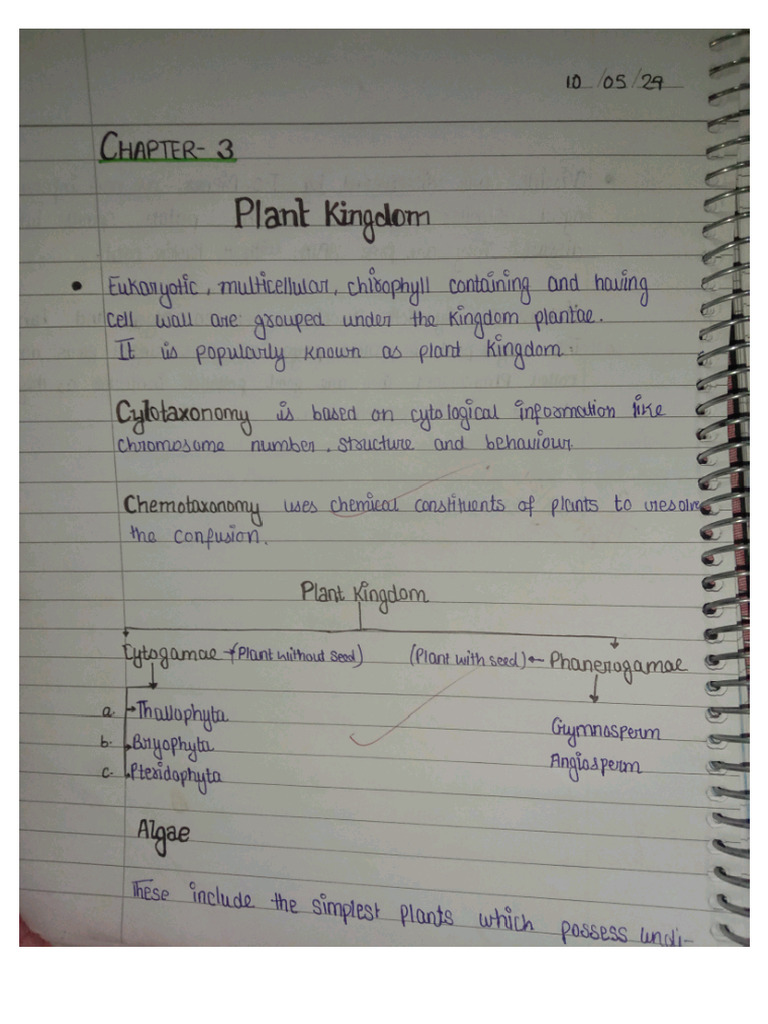 10/05/24
CHAPTER- 3
Plant Kingdom
• Eukaryotic, multicellular, chlrophyll containing and having
cell wall are grouped under the Kingdom plantae.
It is popularly known as plant Kingdom.
Cytotaxonomy is based on cytological information like
chromosome number, structure and behaviour.
Chemotaxonomy uses chemical constituents of plants to resolve
the confusion.
Plant Kingdom
Cytogamae → (Plant without seed) (Plant with seed) ← Phanerogamae
a. → Thallophyta
Gymnosperm
b. → Bryophyta
Angiosperm
c. → Pteridophyta
Algae
These include the simplest plants which possess undi-